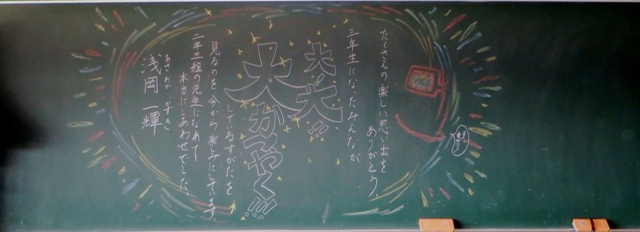 たくさんの楽しい思い出を
ありがとう
三年生になったみんなが
大大
大かつやく!!!
しているすがたを
見るのを今から楽しみにしています。
二年三組の先生になれて
本当にしあわせでした。
あさおか かずき
浅岡 一輝